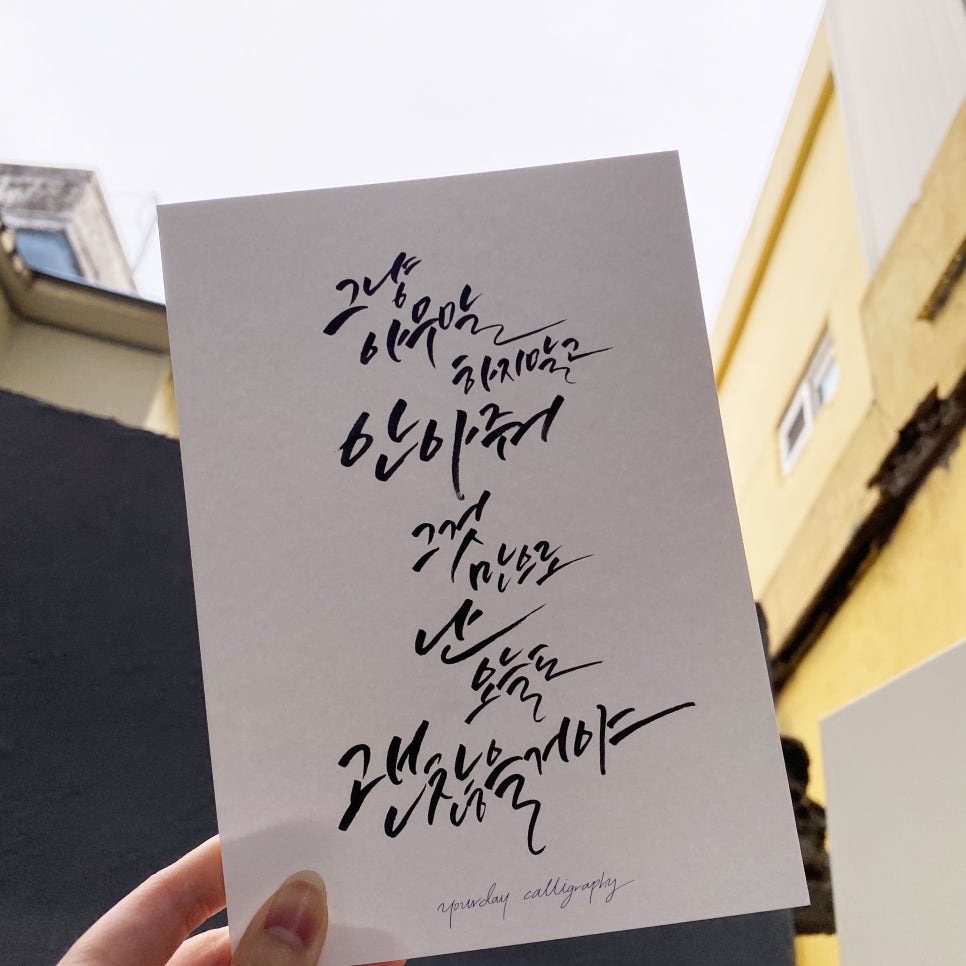 그냥
아무말
하지말고
안아줘
그것
만으로
난
오늘도
괜찮을거야
yourday calligraphy